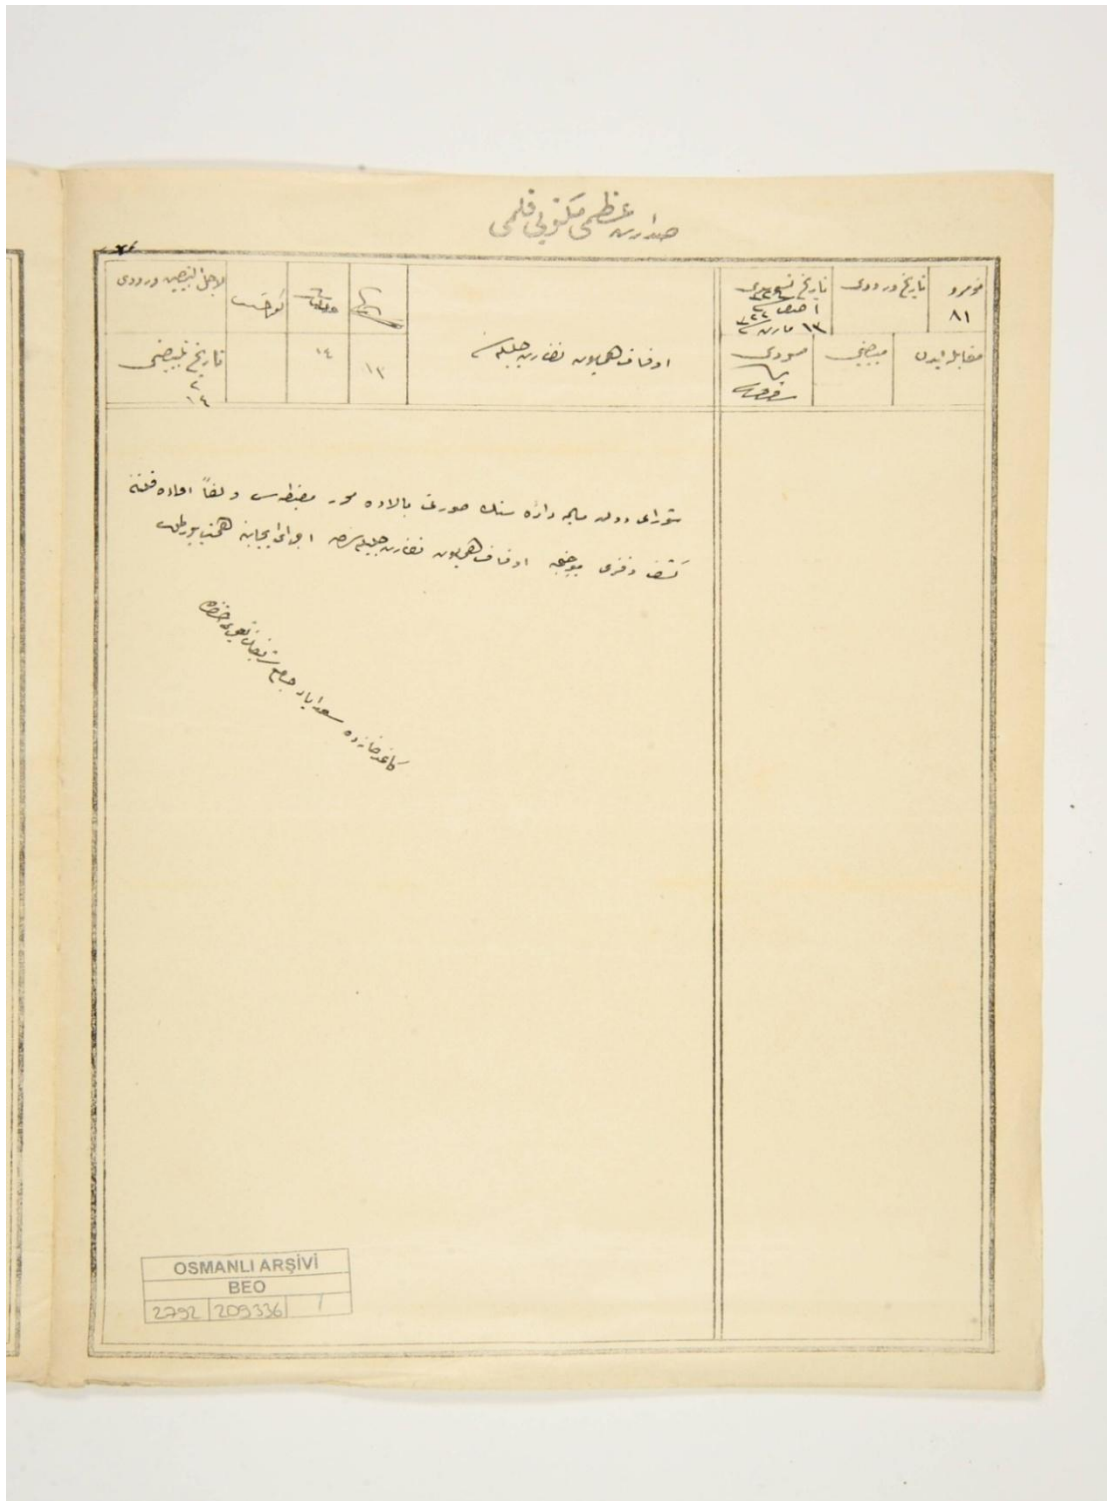 صدارت عظمى مكتوبى قلمى
نومرو
٨١
تاريخ ورودى
تاريخ تسويدى
١ صفر سنه ٣٢٤
١٣ مارت سنه ٣٢٢
مقابله ايدن
مبيضى
مسودى
اوقاف همايون نظارت جليله سنه
١٣
١٤
لاجل التبييض ورودى
تاريخ تبييضى
١٤
شوراى دولت ماليه دائره سنك صورتى بالاده محرر مضبطه سى و لفاً اعاده قلنان
كشف دفترى موجبنجه اوقاف همايون نظارت جليله سنجه اجراى ايجابنه همت بيورلمق
كاغدخانه ده سعداباد جامع شريفنك تعميرى حقنده
OSMANLI ARŞİVİ
BEO
2792 209336 1